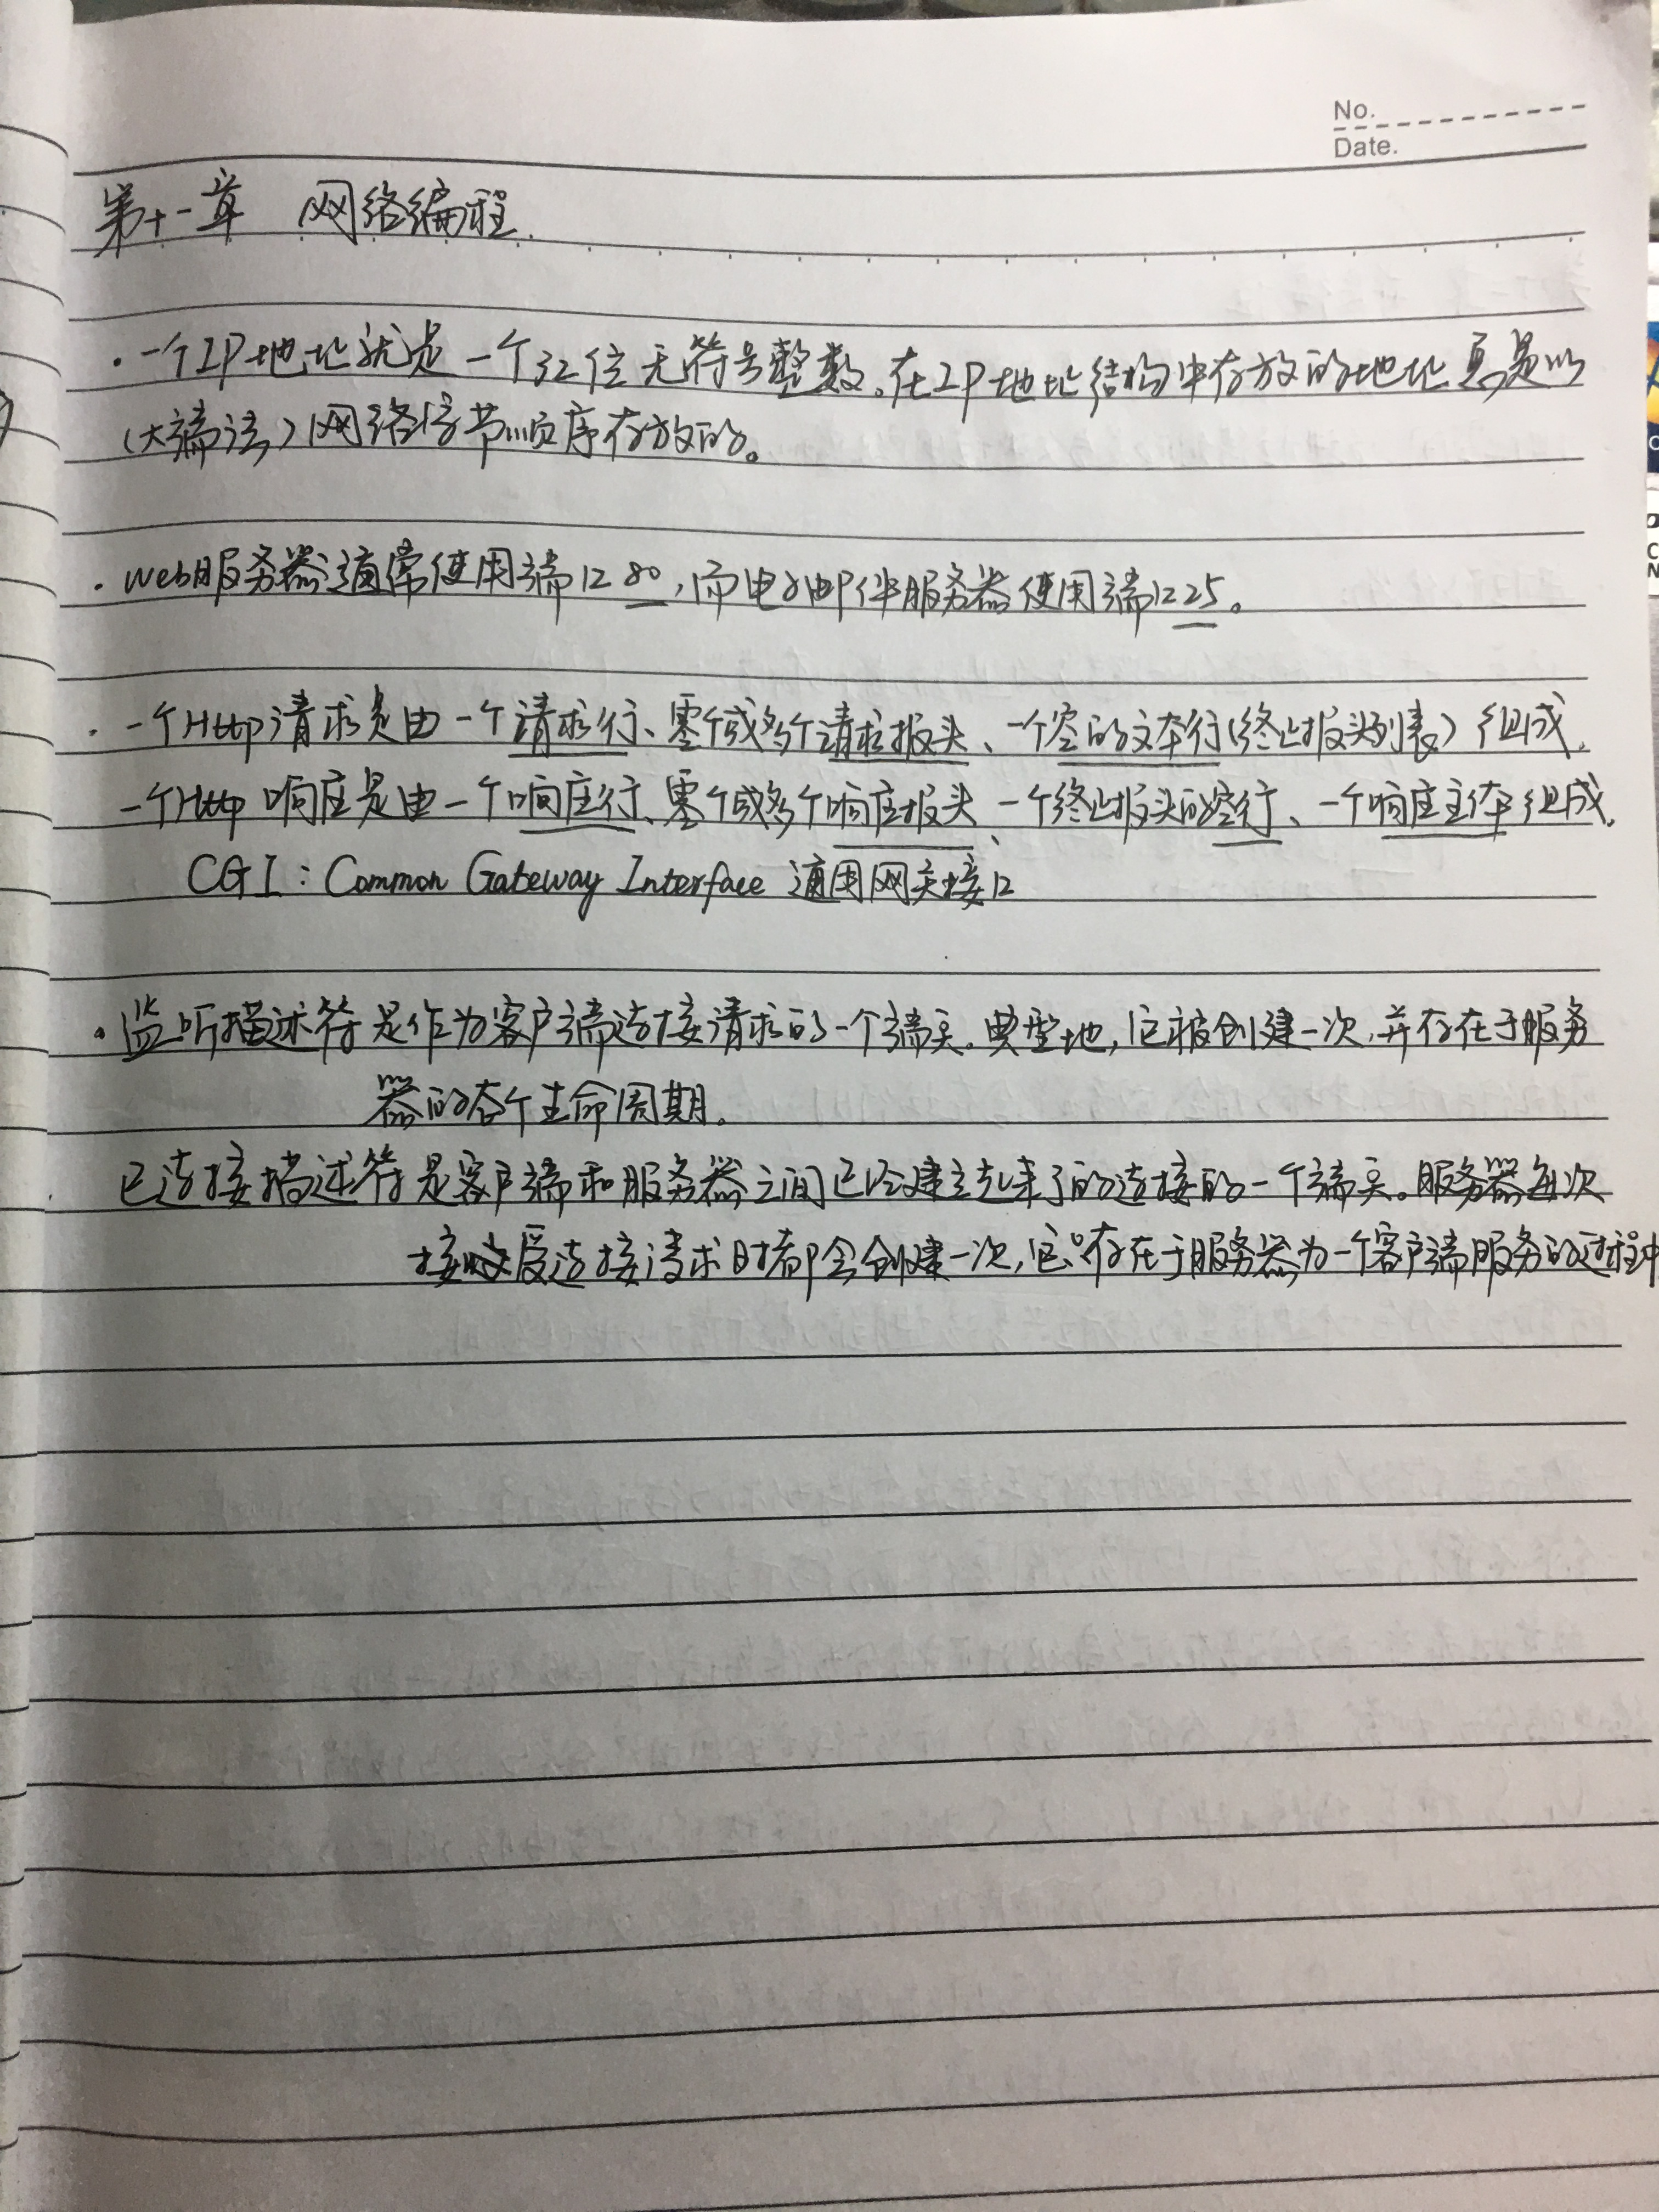 No.
Date.
第十一章 网络编程.
· 一个IP地址就是一个32位无符号整数。在IP地址结构中存放的地址总是以
(大端法)网络字节顺序存放的。
· web服务器通常使用端口80,而电子邮件服务器使用端口25。
· 一个Http请求是由一个请求行、零个或多个请求报头、一个空的文本行(终止报头列表)组成.
一个Http响应是由一个响应行、零个或多个响应报头、一个终止报头的空行、一个响应主体组成.
CGI:Common Gateway Interface 通用网关接口
· 监听描述符是作为客户端连接请求的一个端点。典型地,它被创建一次,并存在于服务
器的整个生命周期。
已连接描述符是客户端和服务器之间已经建立起来了的连接的一个端点。服务器每次
接受连接请求时都会创建一次,它只存在于服务器为一个客户端服务的过程中